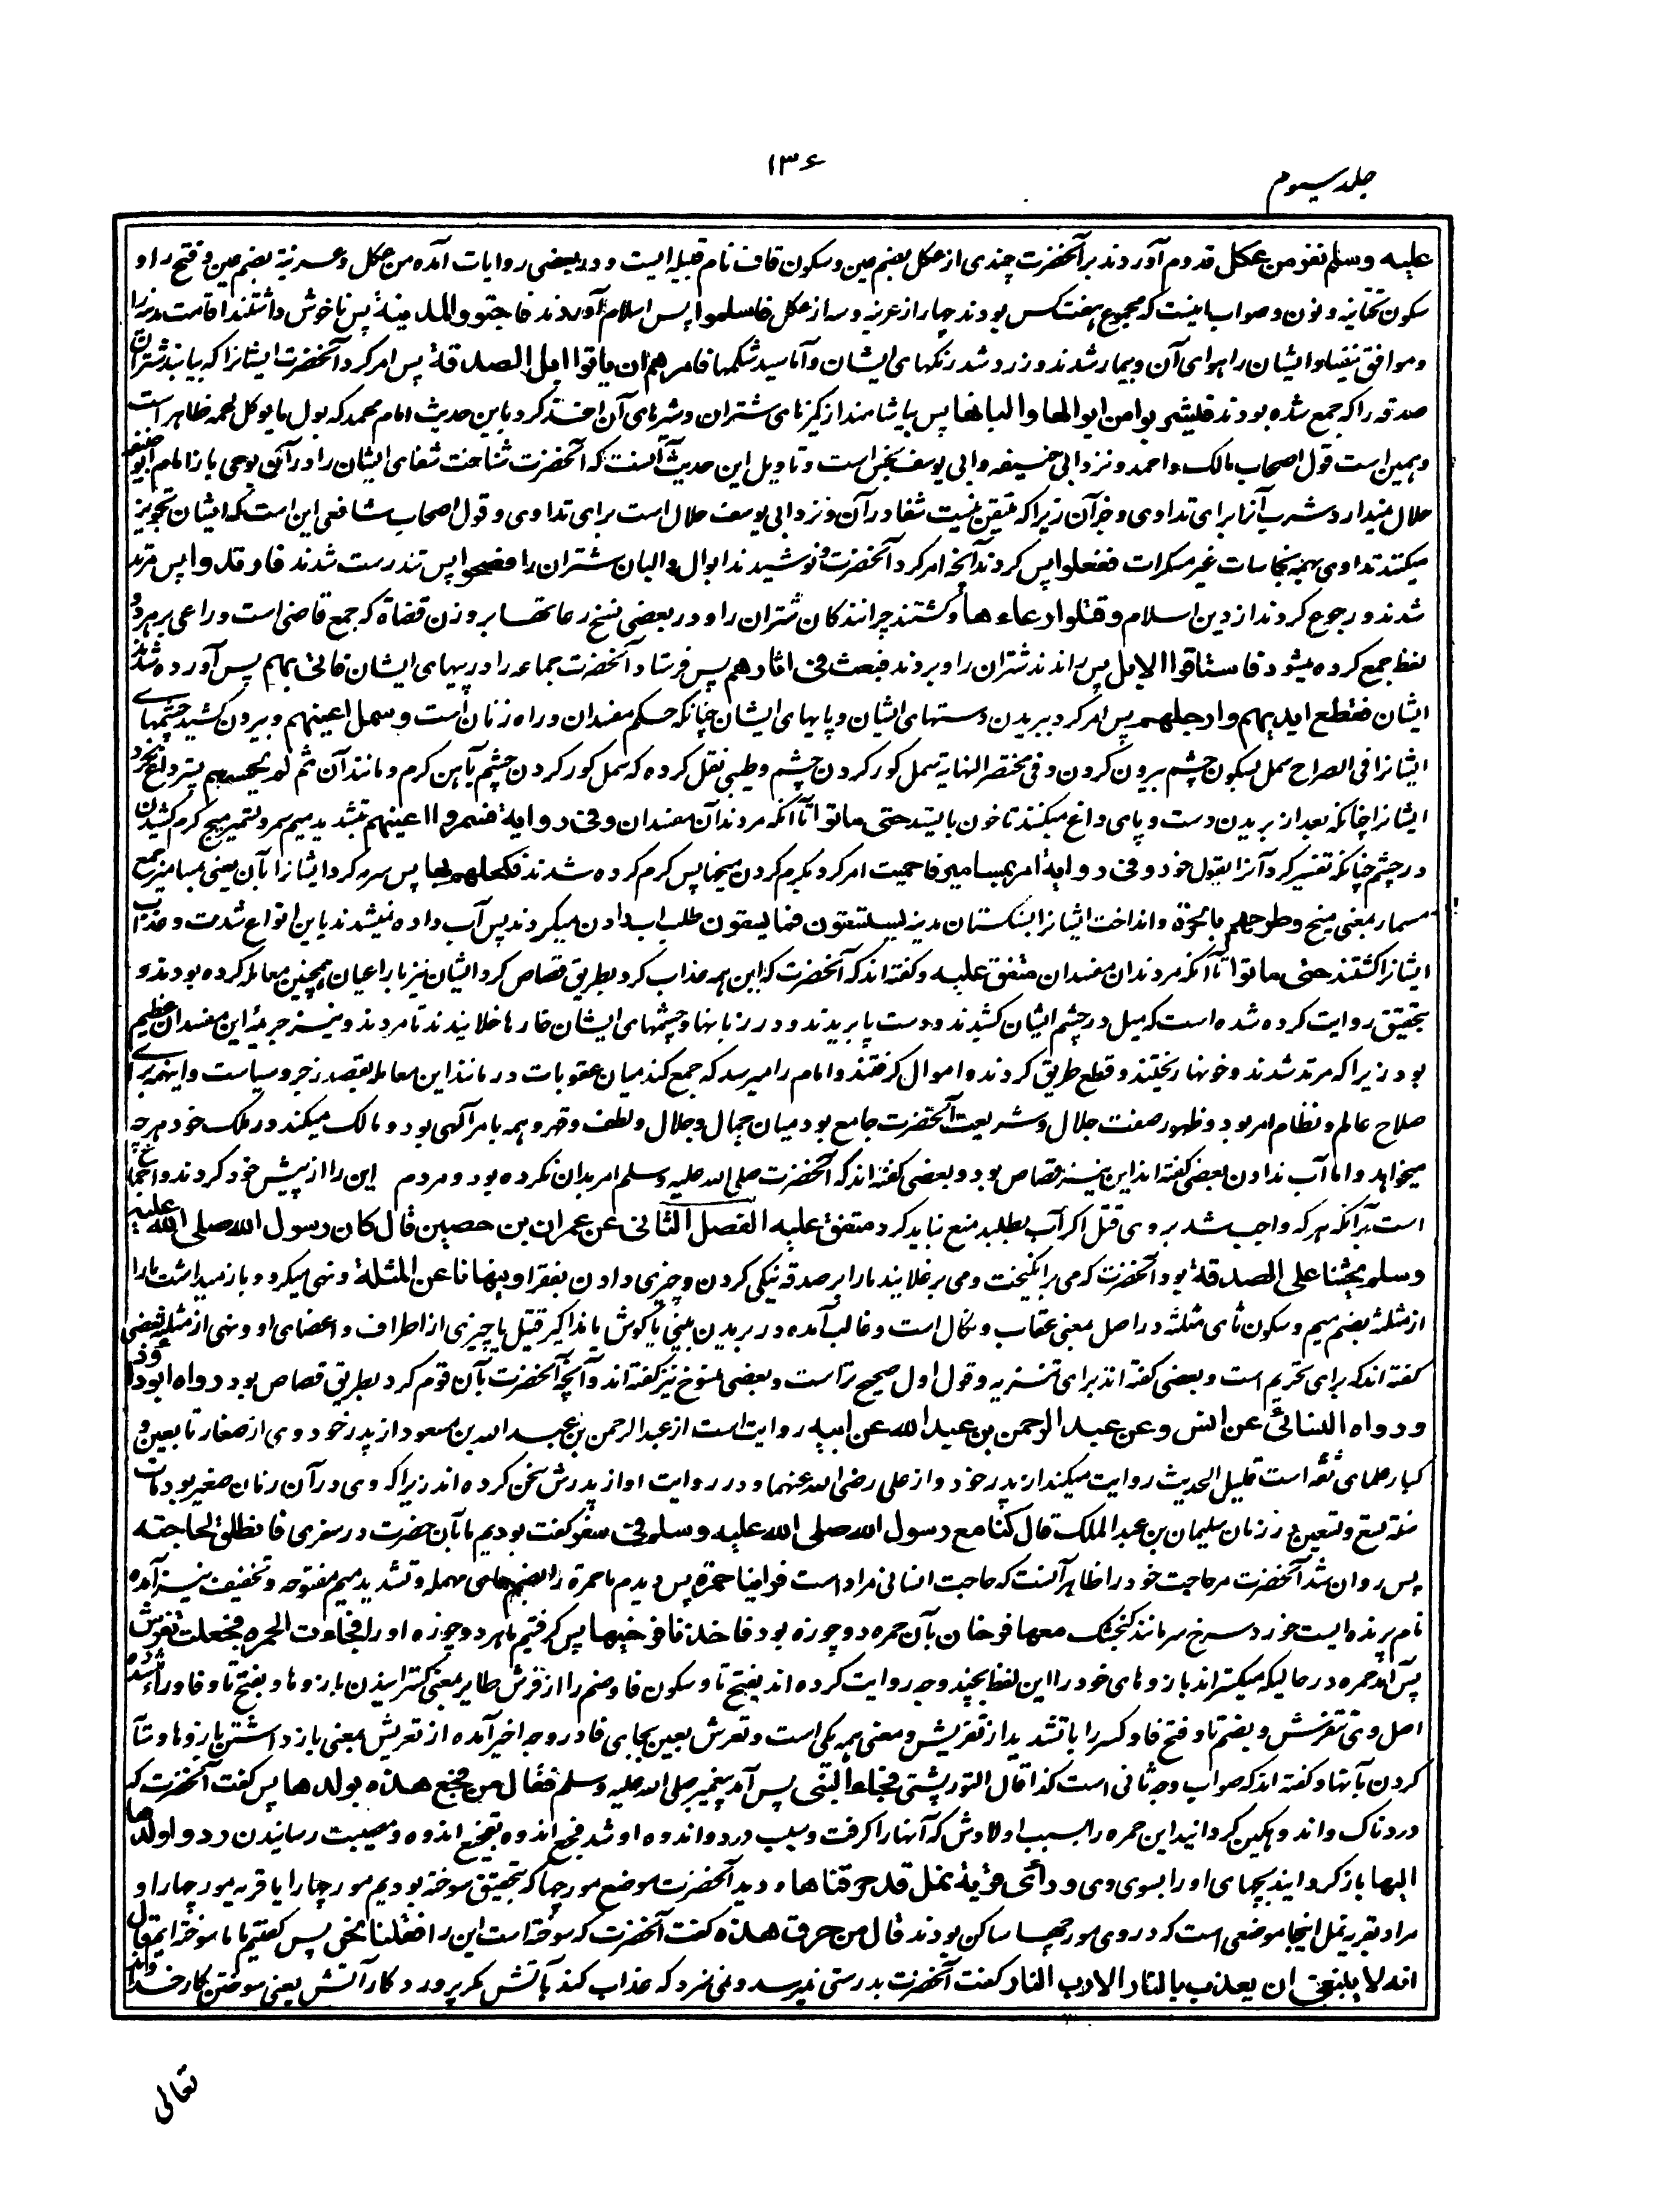 ۱۳۶
جلد سیوم
علیه وسلم نفر من عکل قدوم آوردند بر آنحضرت چندی از عکل بضم عین وسکون قاف نام قبیله ایست و در بعضی روایات آمده من عکل وعرینة بضم عین و فتح را و
سکون تحتانیه و نون و صواب اینست که مجموع هفت کس بودند چهار از عرینه و سه از عکل فاسلموا پس اسلام آوردند فاجتووا المدینة پس ناخوش داشتند اقامت مدینه را
وموافق نیفتاد ایشان را هوای آن وبیمار شدند و زرد شد رنگهای ایشان وآماسید شکمها فامرهم ان یاتوا ابل الصدقة پس امر کرد آنحضرت ایشانرا که بیایند شتران
صدقه را که جمع شده بودند فلیشربوا من ابوالها والبانها پس بیاشامند از کمیزهای شتران وشیرهای آن اخذ کرد باین حدیث امام محمد که بول ما یوکل لحمه طاهر است
وهمین است قول اصحاب مالک واحمد ونزد ابی حنیفه وابی یوسف نجس است وتاویل این حدیث آنست که آنحضرت شناخت شفای ایشان را در آن بوحی باز امام ابو حنیفه
حلال نمیدارد شرب آنرا برای تداوی وجز آن زیرا که متیقن نیست شفا در آن ونزد ابی یوسف حلال است برای تداوی وقول اصحاب شافعی این است که ایشان تجویز
میکنند تداوی بهمه نجاسات غیر مسکرات ففعلوا پس کردند آنچه امر کرد آنحضرت ونوشیدند ابوال والبان شتران را فصحوا پس تندرست شدند فارتدوا پس مرتد
شدند ورجوع کردند از دین اسلام وقتلوا رعاءها وکشتند چرانندکان شتران را ودر بعضی نسخ رعاتها بر وزن قضاة که جمع قاضی است وراعی بر هر دو
لفظ جمع کرده میشود فاستاقوا الابل پس راندند شتران را وبردند فبعث فی اثارهم پس فرستاد آنحضرت جماعه را در پیهای ایشان فاتی بهم پس آورده شدند
ایشان فقطع ایدیهم وارجلهم پس امر کرد ببریدن دستهای ایشان وپایهای ایشان چنانکه حکم مفسدان وراه زنان است وسمل اعینهم وبیرون کشید چشمهای
ایشانرا فی الصراح سمل بسکون چشم بیرون کردن وفی مختصر النهایة سمل کور کردن چشم وطیبی نقل کرده که سمل کور کردن چشم بآهن کرم ومانند آن ثم لم یحسمهم پستر داغ نکرد
ایشانرا چنانکه بعد از بریدن دست وپای داغ میکنند تا خون بایستد حتی ماتوا تا آنکه مردند آن مفسدان وفی روایة فسمروا اعینهم بتشدید میم سمر وتسمیر میخ کرم کشیدن
در چشم چنانکه تفسیر کرد آنرا بقول خود وفی روایة امر بمسامیر فاحمیت امر کرد بکرم کردن میخها پس کرم کرده شدند فکحلهم بها پس سرمه کرد ایشانرا بآن یعنی بمسامیر جمع
مسمار بمعنی میخ وطرحهم بالحرة وانداخت ایشانرا بسنکستان مدینه یستسقون فما یسقون طلب آب دادن میکردند پس آب داده نمیشدند باین انواع شدت وعذاب
ایشانرا کشتند حتی ماتوا تا آنکه مردند آن مفسدان متفق علیه وکفته اند که آنحضرت که این همه عذاب کرد بطریق قصاص کرد ایشان نیز با راعیان همچنین معامله کرده بودند و
بتحقیق روایت کرده شده است که میل در چشم ایشان کشیدند ودست پا بریدند ودر زبانها وچشمهای ایشان خارها خلانیدند تا مردند ونیز جریمه این مفسدان عظیم
بود زیرا که مرتد شدند وخونها ریختند وقطع طریق کردند واموال کرفتند وامام را میرسد که جمع کند میان عقوبات در مانند این معامله بقصد زجر وسیاست واینهمه برای
صلاح عالم ونظام امر بود وظهور صفت جلال وشریعت آنحضرت جامع بود میان جمال وجلال ولطف وقهر وهمه بامر آلهی بود ومالک میکند در ملک خود هر چه
میخواهد واما آب ندادن بعضی کفته اند این نیز قصاص بود وبعضی کفته اند که آنحضرت صلی الله علیه وسلم امر بدان نکرده بود ومردم این را از پیش خود کردند واجماع
است برآنکه هر که واجب شد بر وی قتل اکر آب بطلبد منع نباید کرد متفق علیه الفصل الثانی عن عمران بن حصین قال کان رسول الله صلی الله علیه
وسلم یحثنا علی الصدقة بود آنحضرت که می برانکیخت ومی برغلانید ما را بر صدقه نیکی کردن وچیزی دادن بفقرا وینهانا عن المثلة ونهی میکرد وباز میداشت ما را
از مثله بضم میم وسکون ثای مثلثه در اصل معنی عقاب ونکال است وغالب آمده در بریدن بینی یا کوش یا مذاکیر قتیل یا چیزی از اطراف واعضای او ونهی از مثله بعضی
کفته اند که برای تحریم است وبعضی کفته اند برای تنزیه وقول اول صحیح تر است وبعضی منسوخ نیز کفته اند وآنچه آنحضرت بآن قوم کرد بطریق قصاص بود رواه ابوداؤد
ورواه النسائی عن انس وعن عبد الرحمن بن عبد الله عن ابیه روایت است از عبد الرحمن بن عبد الله بن مسعود از پدر خود وی از صغار تابعین و
کبار علمای ثقه است قلیل الحدیث روایت میکند از پدر خود واز علی رضی الله عنهما ودر روایت او از پدرش سخن کرده اند زیرا که وی در آن زمان صغیر بود مات
سنة تسع وتسعین در زمان سلیمان بن عبد الملک قال کنا مع رسول الله صلی الله علیه وسلم فی سفر کفت بودیم ما بآن حضرت در سفری فانطلق لحاجته
پس روان شد آنحضرت مر حاجت خود را ظاهر آنست که حاجت انسانی مراد است فراینا حمرة پس دیدیم ما حمره را بضم حای مهمله وتشدید میم مفتوحه وتخفیف نیز آمده
نام پرنده ایست خورد سرخ سر مانند کنجشک معها فرخان بآن حمره دو چوزه بود فاخذنا فرخیها پس کرفتیم ما هر دو چوزه او را فجاءت الحمرة فجعلت تفرش
پس آمد حمره در حالیکه میکستراند بازوهای خود را این لفظ بچند وجه روایت کرده اند بفتح تا وسکون فا وضم را از فرش طایر بمعنی کسترانیدن بازوها وبفتح تا وفا وراء مشدده
اصل وی تتفرش وبضم تا وفتح فا وکسر را با تشدید از تفریش ومعنی همه یکی است وتعرش بعین بجای فا در وجه اخیر آمده از تعریش بمعنی باز داشتن بازوها وسایه
کردن بآنها وکفته اند که صواب وجه ثانی است کذا قال التورپشتی فجاء النبی پس آمد پیغمبر صلی الله علیه وسلم فقال من فجع هذه بولدها پس کفت آنحضرت که
دردناک واندوهکین کردانید این حمره را بسبب اولادش که آنها را کرفت وسبب درد واندوه او شد فجع اندوه تفجیع اندوه ومصیبت رسانیدن ردوا ولدها
الیها باز کردانید بچهای او را بسوی وی ورأی قریة نمل قد حرقناها ودید آنحضرت موضع مورچها که بتحقیق سوخته بودیم مورچها را یا قریه مورچها را و
مراد بقریه نمل اینجا موضعی است که در وی مورچها ساکن بودند قال من حرق هذه کفت آنحضرت که سوخته است این را فقلنا نحن پس کفتیم ما ما سوخته ایم قال
انه لا ینبغی ان یعذب بالنار الا رب النار کفت آنحضرت بدرستی نمیرسد ونمی سزد که عذاب کند بآتش مکر پروردکار آتش یعنی سوختن کار خداوند
تعالی